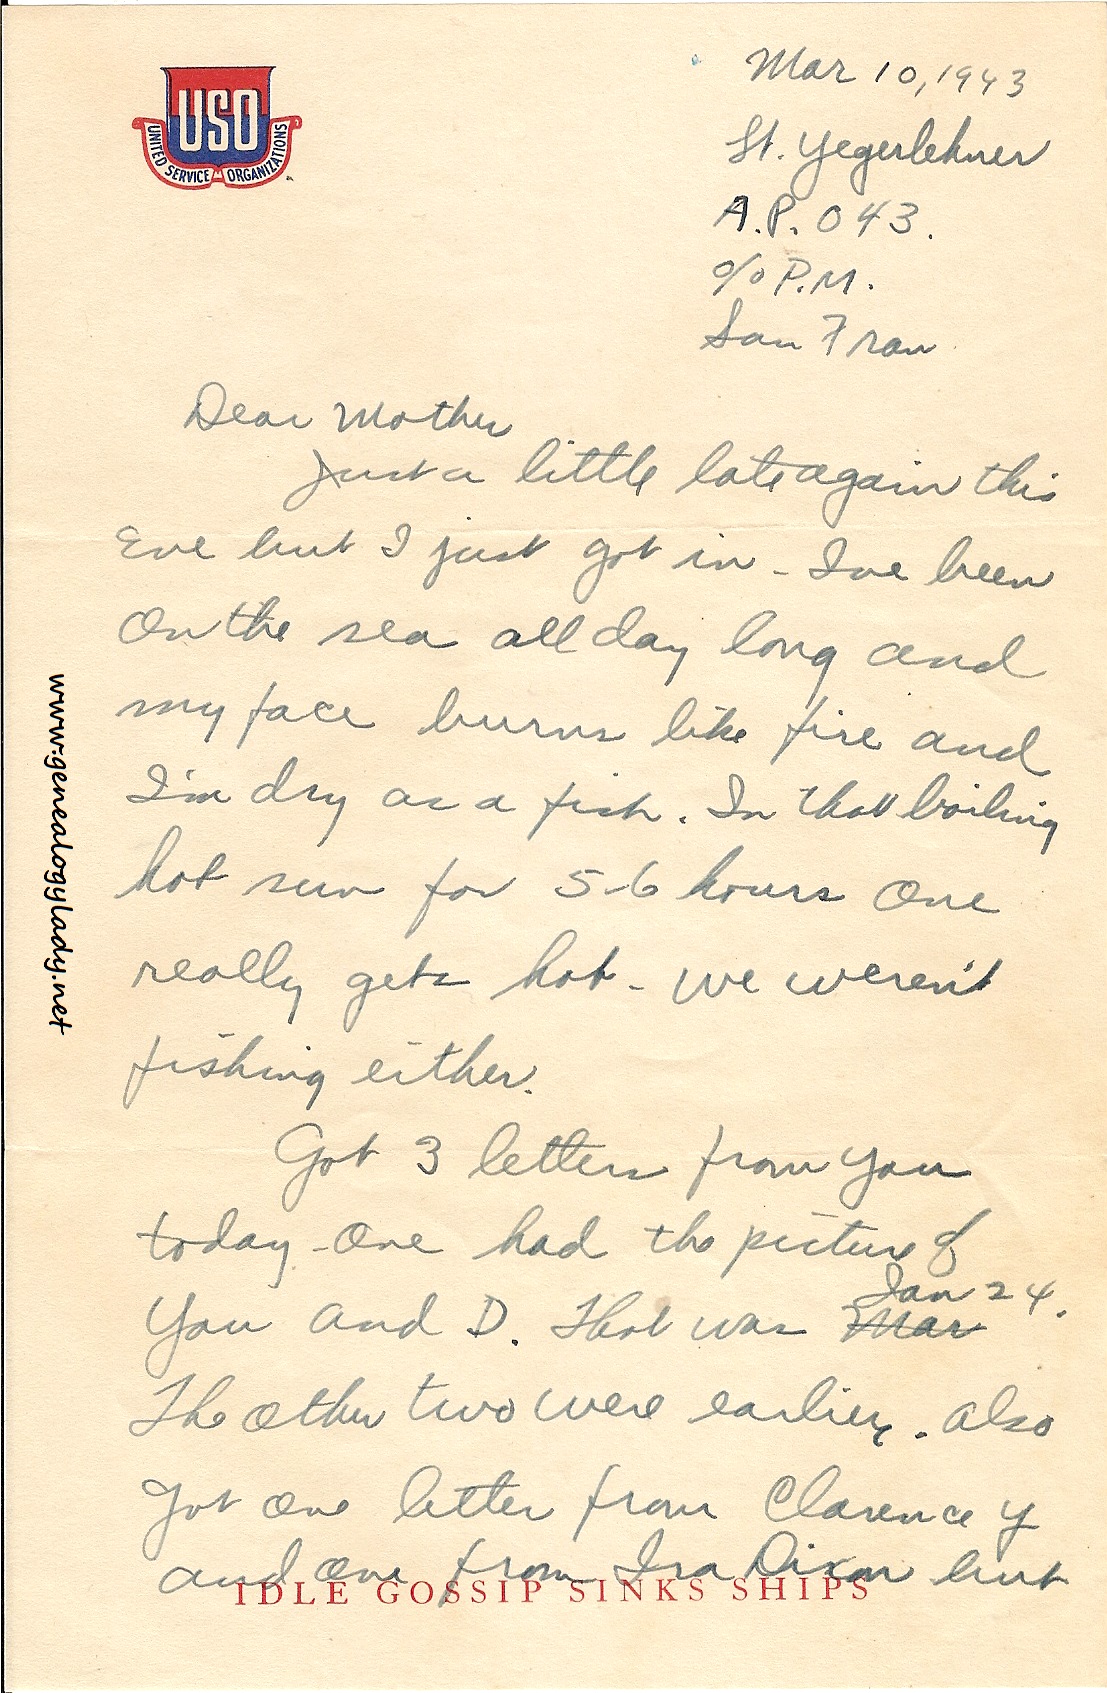 USO
UNITED SERVICE ORGANIZATIONS
Mar 10, 1943
Lt. Yegerlehner
A.P.O 43.
c/o P.M.
San Fran
Dear Mother
Just a little late again this
Eve but I just got in - I've been
on the sea all day long and
my face burns like fire and
I'm dry as a fish. In that boiling
hot sun for 5-6 hours one
really gets hot - we weren't
fishing either.
Got 3 letters from you
today - One had the picture of
You and D. That was Mar Jan 24.
The other two were earlier. Also
got one letter from Clarence Y
and one from Ira Dixon but
IDLE GOSSIP SINKS SHIPS
www.genealogylady.net